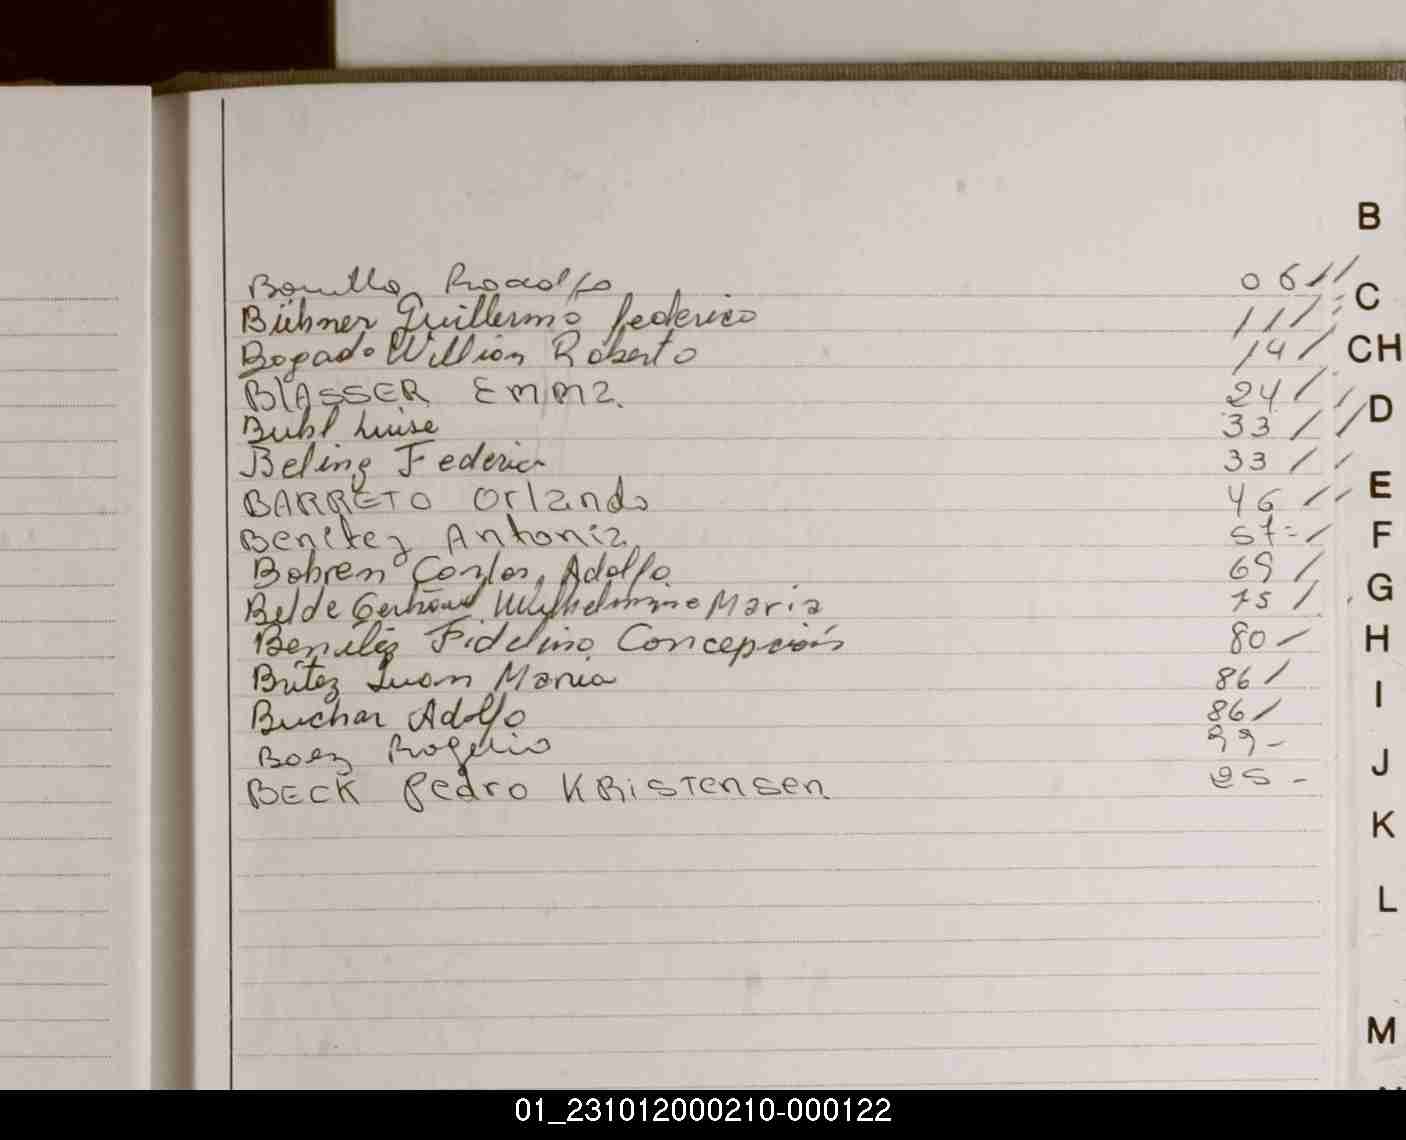 B
Bonilla Rodolfo 06//
C
Bübner Guillermo Federico 11/
Bogado Willian Roberto 14/
CH
BlASSER Emma. 24/
D
Buhl Luise 33/
Beling Federico 33/
E
BARRETO Orlando 46/
F
Benitez Antonia 57
Bobren Carlos Adolfo. 69/
G
Belde Wilhelmine Maria 75/
H
Benitez Fidelino Concepción 80-
I
Britez Juan Maria 86/
Buchar Adolfo 86/
J
Baez Rogelio 99-
BECK Pedro KRiSTensen 95-
K
L
M
01_231012000210-000122